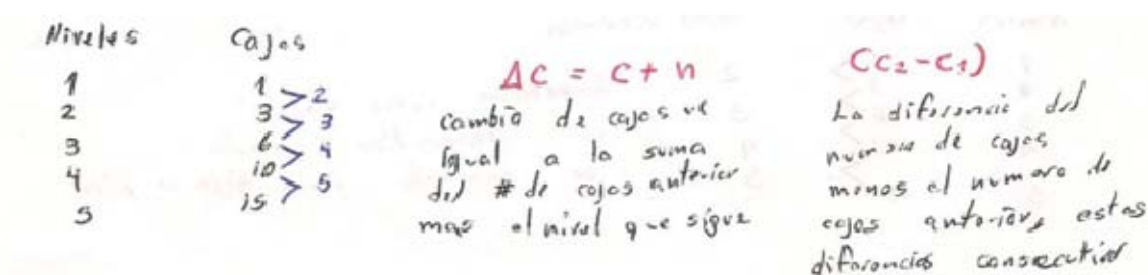 Niveles Cajas
1 1 > 2
2 3 > 3
3 6 > 4
4 10 > 5
5 15
ΔC = C + n
cambio de cajas
igual a la suma
del # de cajas anterior
mas el nivel que sigue
(C₂-C₁)
La diferencia del
numero de cajas
menos el numero de
cajas anterior, estas
diferencias consecutivas